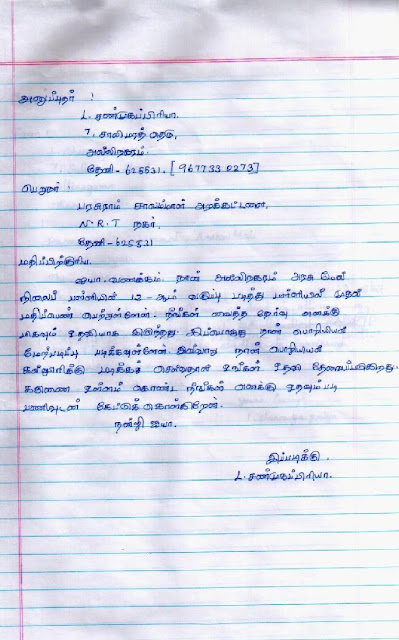 அனுப்புநர் :
L. சண்முகப்பிரியா.
7. சாலியர் தெரு,
அல்லிநகரம்.
தேனி - 625531. [9677330273]
பெறுநர் :
பரசுராம் சாலம்மாள் அறக்கட்டளை,
N.R.T நகர்,
தேனி - 625531
மதிப்பிற்குரிய
ஐயா வணக்கம். நான் அல்லிநகரம் அரசு மேல்
நிலைப் பள்ளியில் 12-ஆம் வகுப்பு படித்து பள்ளியில் முதல்
மதிப்பெண் பெற்றுள்ளேன். நீங்கள் வைத்த தேர்வு எனக்கு
மிகவும் உதவியாக இருந்தது. இப்பொழுது நான் பொறியியல்
மேற்படிப்பு படிக்கவுள்ளேன். இவ்வாறு நான் பொறியியல்
கல்லூரிக்கு படிக்கச் செல்வதால் உங்கள் உதவி தேவைப்படுகிறது.
கருணை உள்ளம் கொண்ட நீங்கள் எனக்கு உதவும்படி
பணிவுடன் கேட்டுக் கொள்கிறேன்.
நன்றி ஐயா.
இப்படிக்கு,
L. சண்முகப்பிரியா.